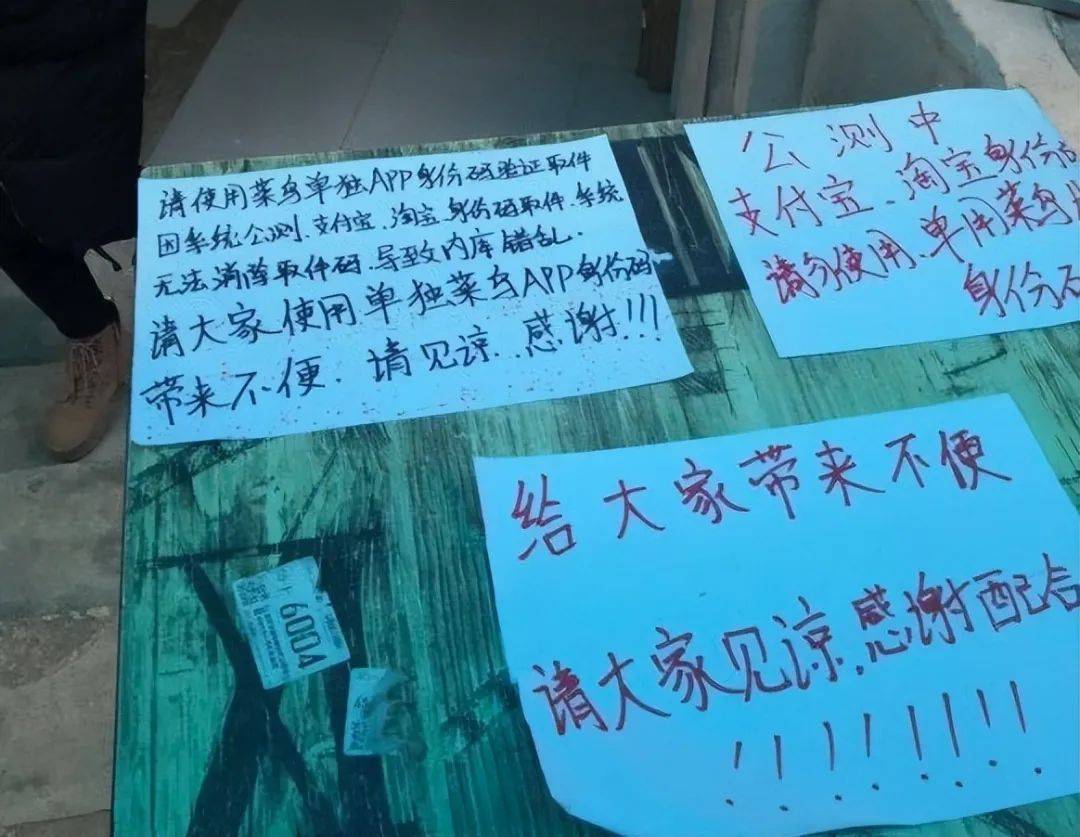 请使用菜鸟单独APP身份码验证取件
因系统公测.支付宝、淘宝.身份码取件.系统
无法消除取件码.导致内库错乱.
请大家使用单独菜鸟APP身份码.
带来不便.请见谅..感谢!!!
公测中
支付宝、淘宝身份
请勿使用、单用菜鸟
身份
给大家带来不便
请大家见谅.感谢配合
!!!!!!!!
6004